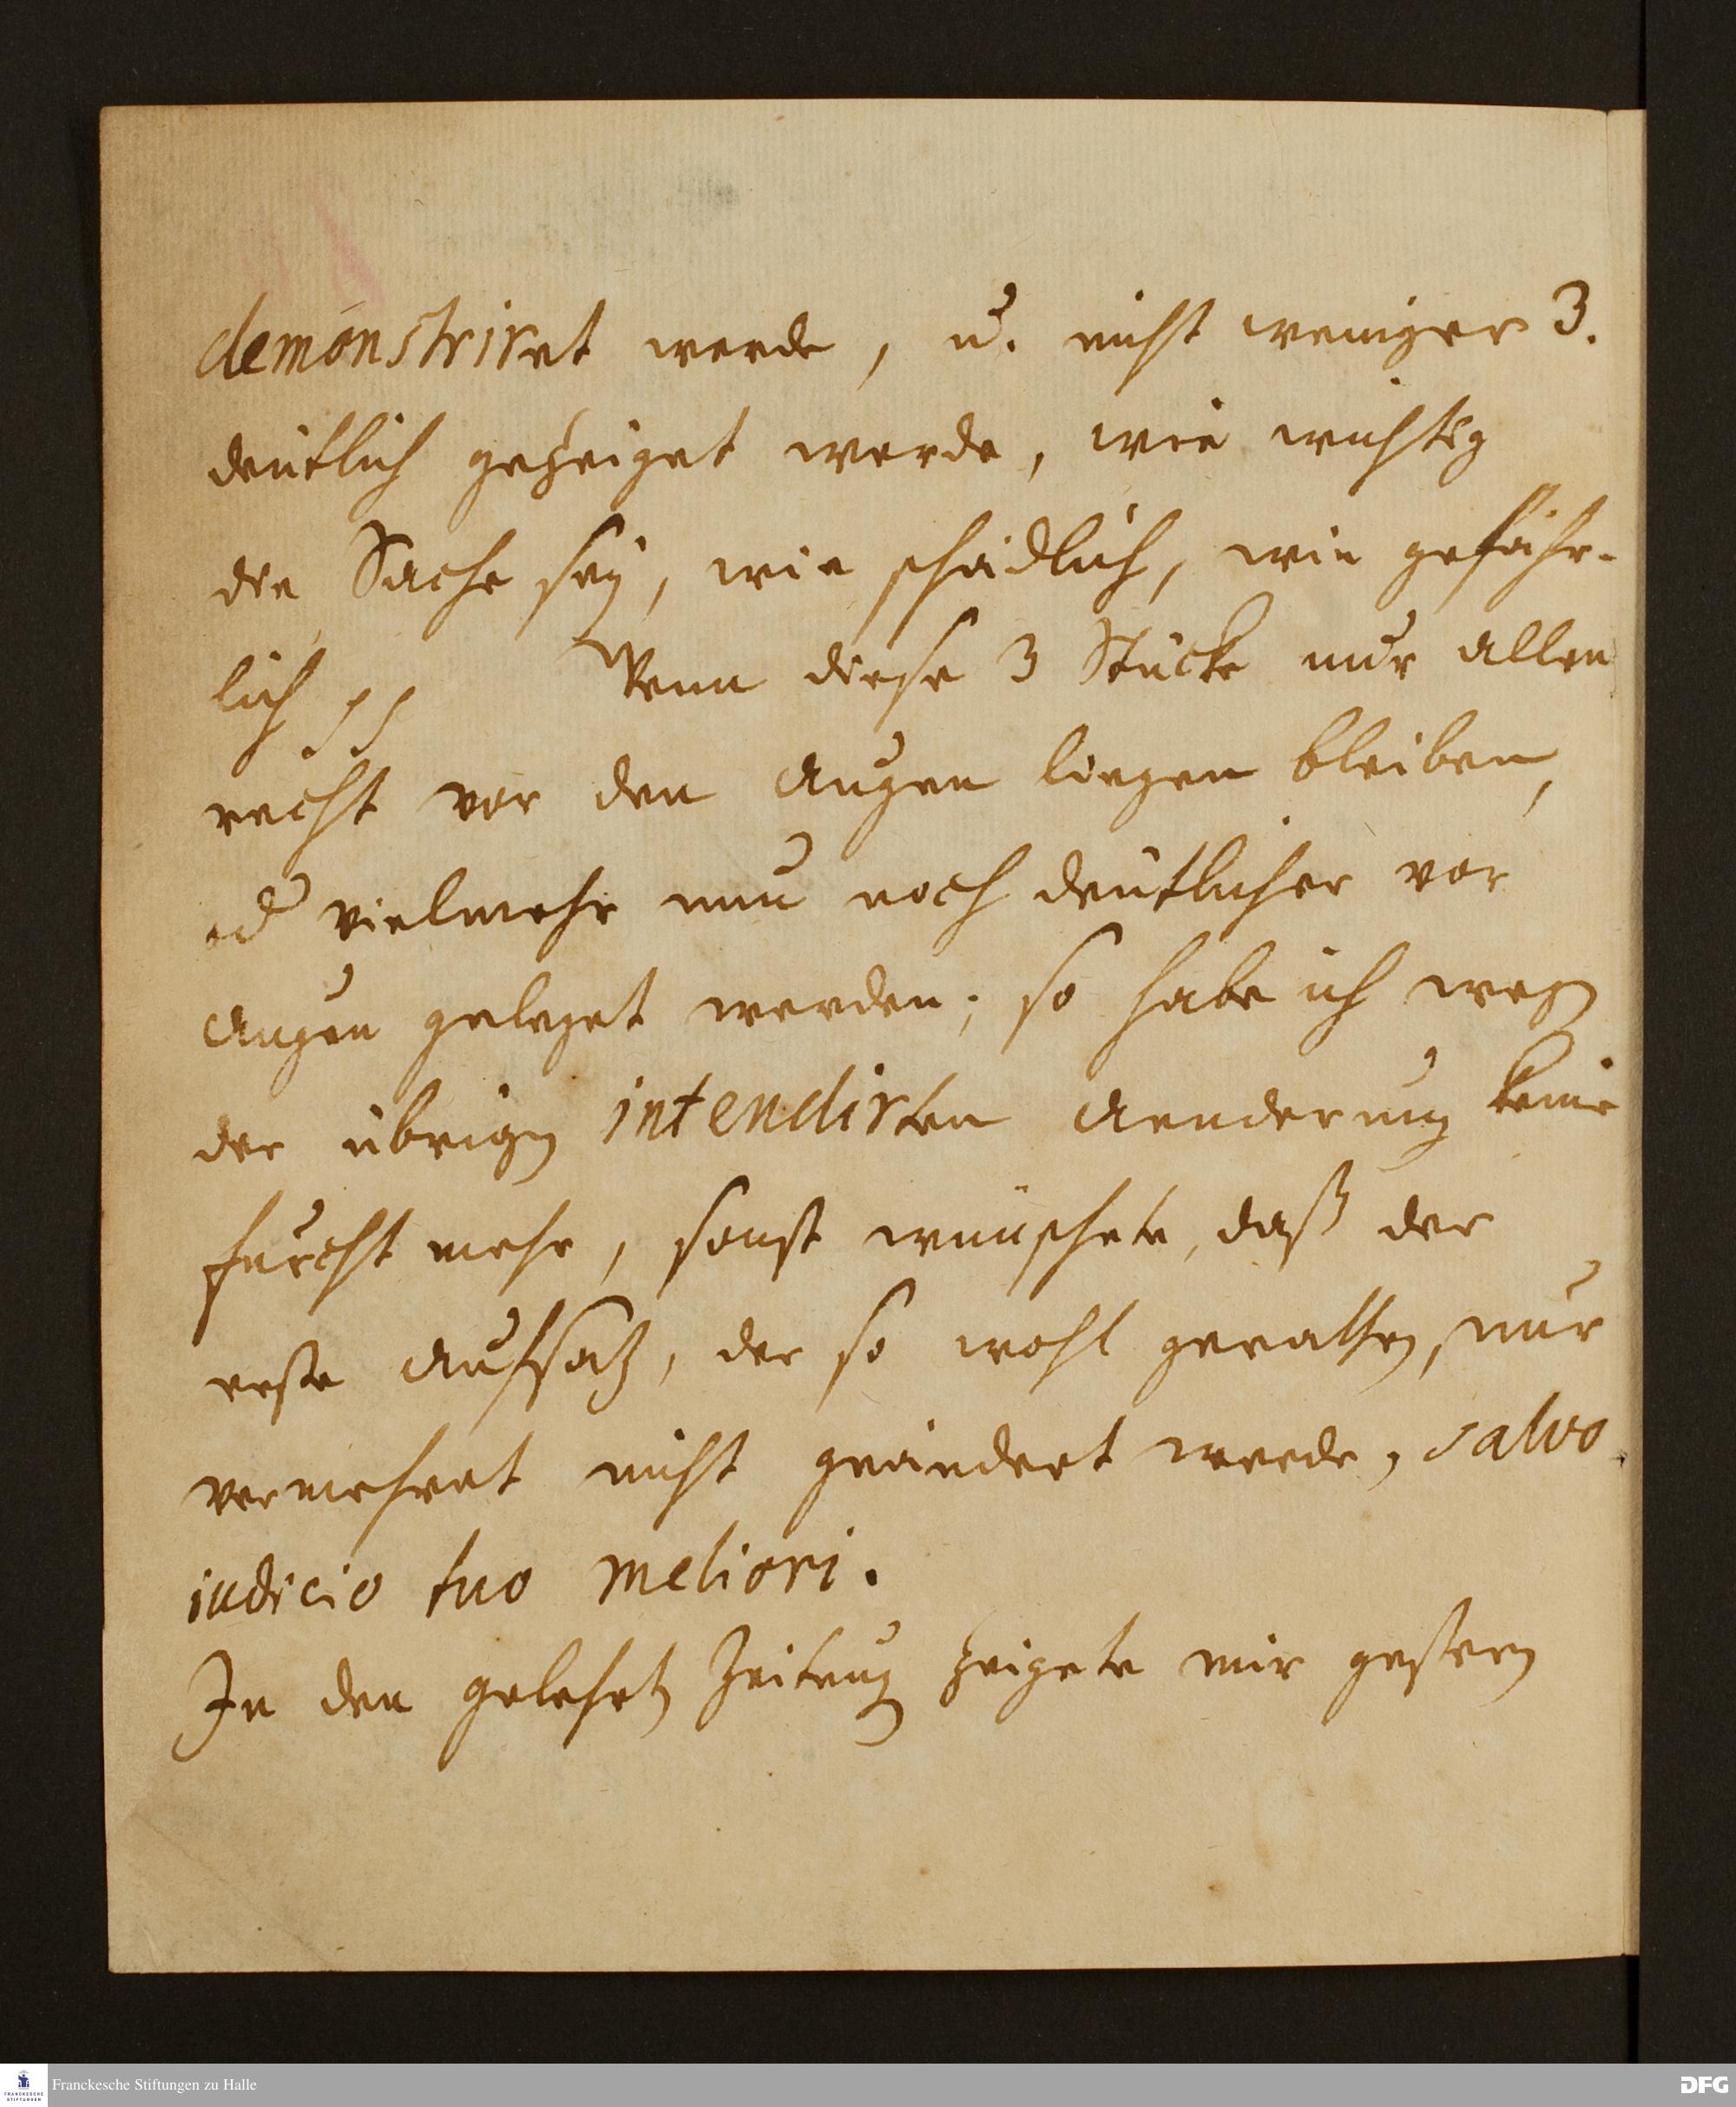 demonstriret werde, u. nicht weniger 3.
deutlich gezeiget werde, wie wichtig
die Sache sey, wie schädlich, wie gefähr-
lich pp Wenn diese 3 Stücke nur allen
recht vor den Augen liegen bleiben,
od vielmehr nun noch deutlicher vor
Augen geleget werden; so habe ich wegen
der übrigen intendirten Aenderung keine
furcht mehr, sonst wünschete, daß der
erste Aufsatz, der so wohl gerathen, nur
vermehret nicht geändert werde, salvo
iudicio tuo meliori.
In den gelehrten Zeitung zeigete mir gestern
Franckesche Stiftungen zu Halle
DFG